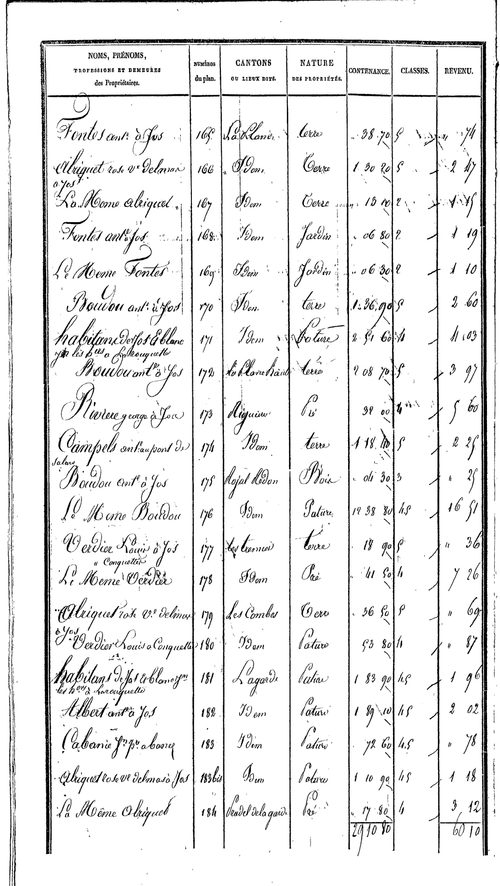 NOMS, PRÉNOMS, PROFESSIONS ET DEMEURES des Propriétaires. | NUMÉROS du plan. | CANTONS OU LIEUX DITS. | NATURE DES PROPRIÉTÉS. | CONTENANCE. | CLASSES. | REVENU.
Fontes ant. à Jos 165 La Plane terre " 38 70 5 " 74
Abriquet rose Ve delmas à Jos 166 Idem Terre 1 30 20 5 2 47
La Meme Abriquet 167 Idem Terre 13 10 2 1 15
Fontes ant. Jos 168 Idem Jardin " 06 80 2 1 19
Le Meme Fontes 169 Idem Jardin " 06 30 2 1 10
Boudou ant. à Jos 170 Idem terre 1 36 90 5 2 60
habitans de Jos & blanc 171 Idem Pature 2 51 60 4 4 03
Boudou ant. à Jos 172 terre 2 08 70 5 3 97
Riviere george à Jos 173 Pré 32 00 4 5 60
Campels ant. au pont de 174 Idem terre 1 18 40 5 2 25
Boudou ant. à Jos 175 Bois " 04 30 3 " 25
Le Meme Boudou 176 Idem Pature 12 38 80 4.5 16 51
Verdier Louis à Jos 177 terre " 18 90 5 " 36
" Conquettes
Le Meme Verdier 178 Idem Pré " 41 50 4 7 26
Abriquet rose Ve delmas à Jos 179 Les Combes Terre " 36 50 5 " 69
Verdier Louis à Conquettes 180 Idem Pature " 53 80 4 " 87
habitans de Jos & blanc 181 Lagarde Pature 1 83 90 4.5 1 96
Albert ant. à Jos 182 Idem Pature 1 89 10 4.5 2 02
Cabanie 183 Idem Pature " 72 60 4.5 " 78
Abriquet rose Ve delmas à Jos 183bis Idem Pature 1 10 90 4.5 1 18
La Même Abriquet 184 Pradel de la garde Pré " 17 80 4 3 12
29 10 80 60 10